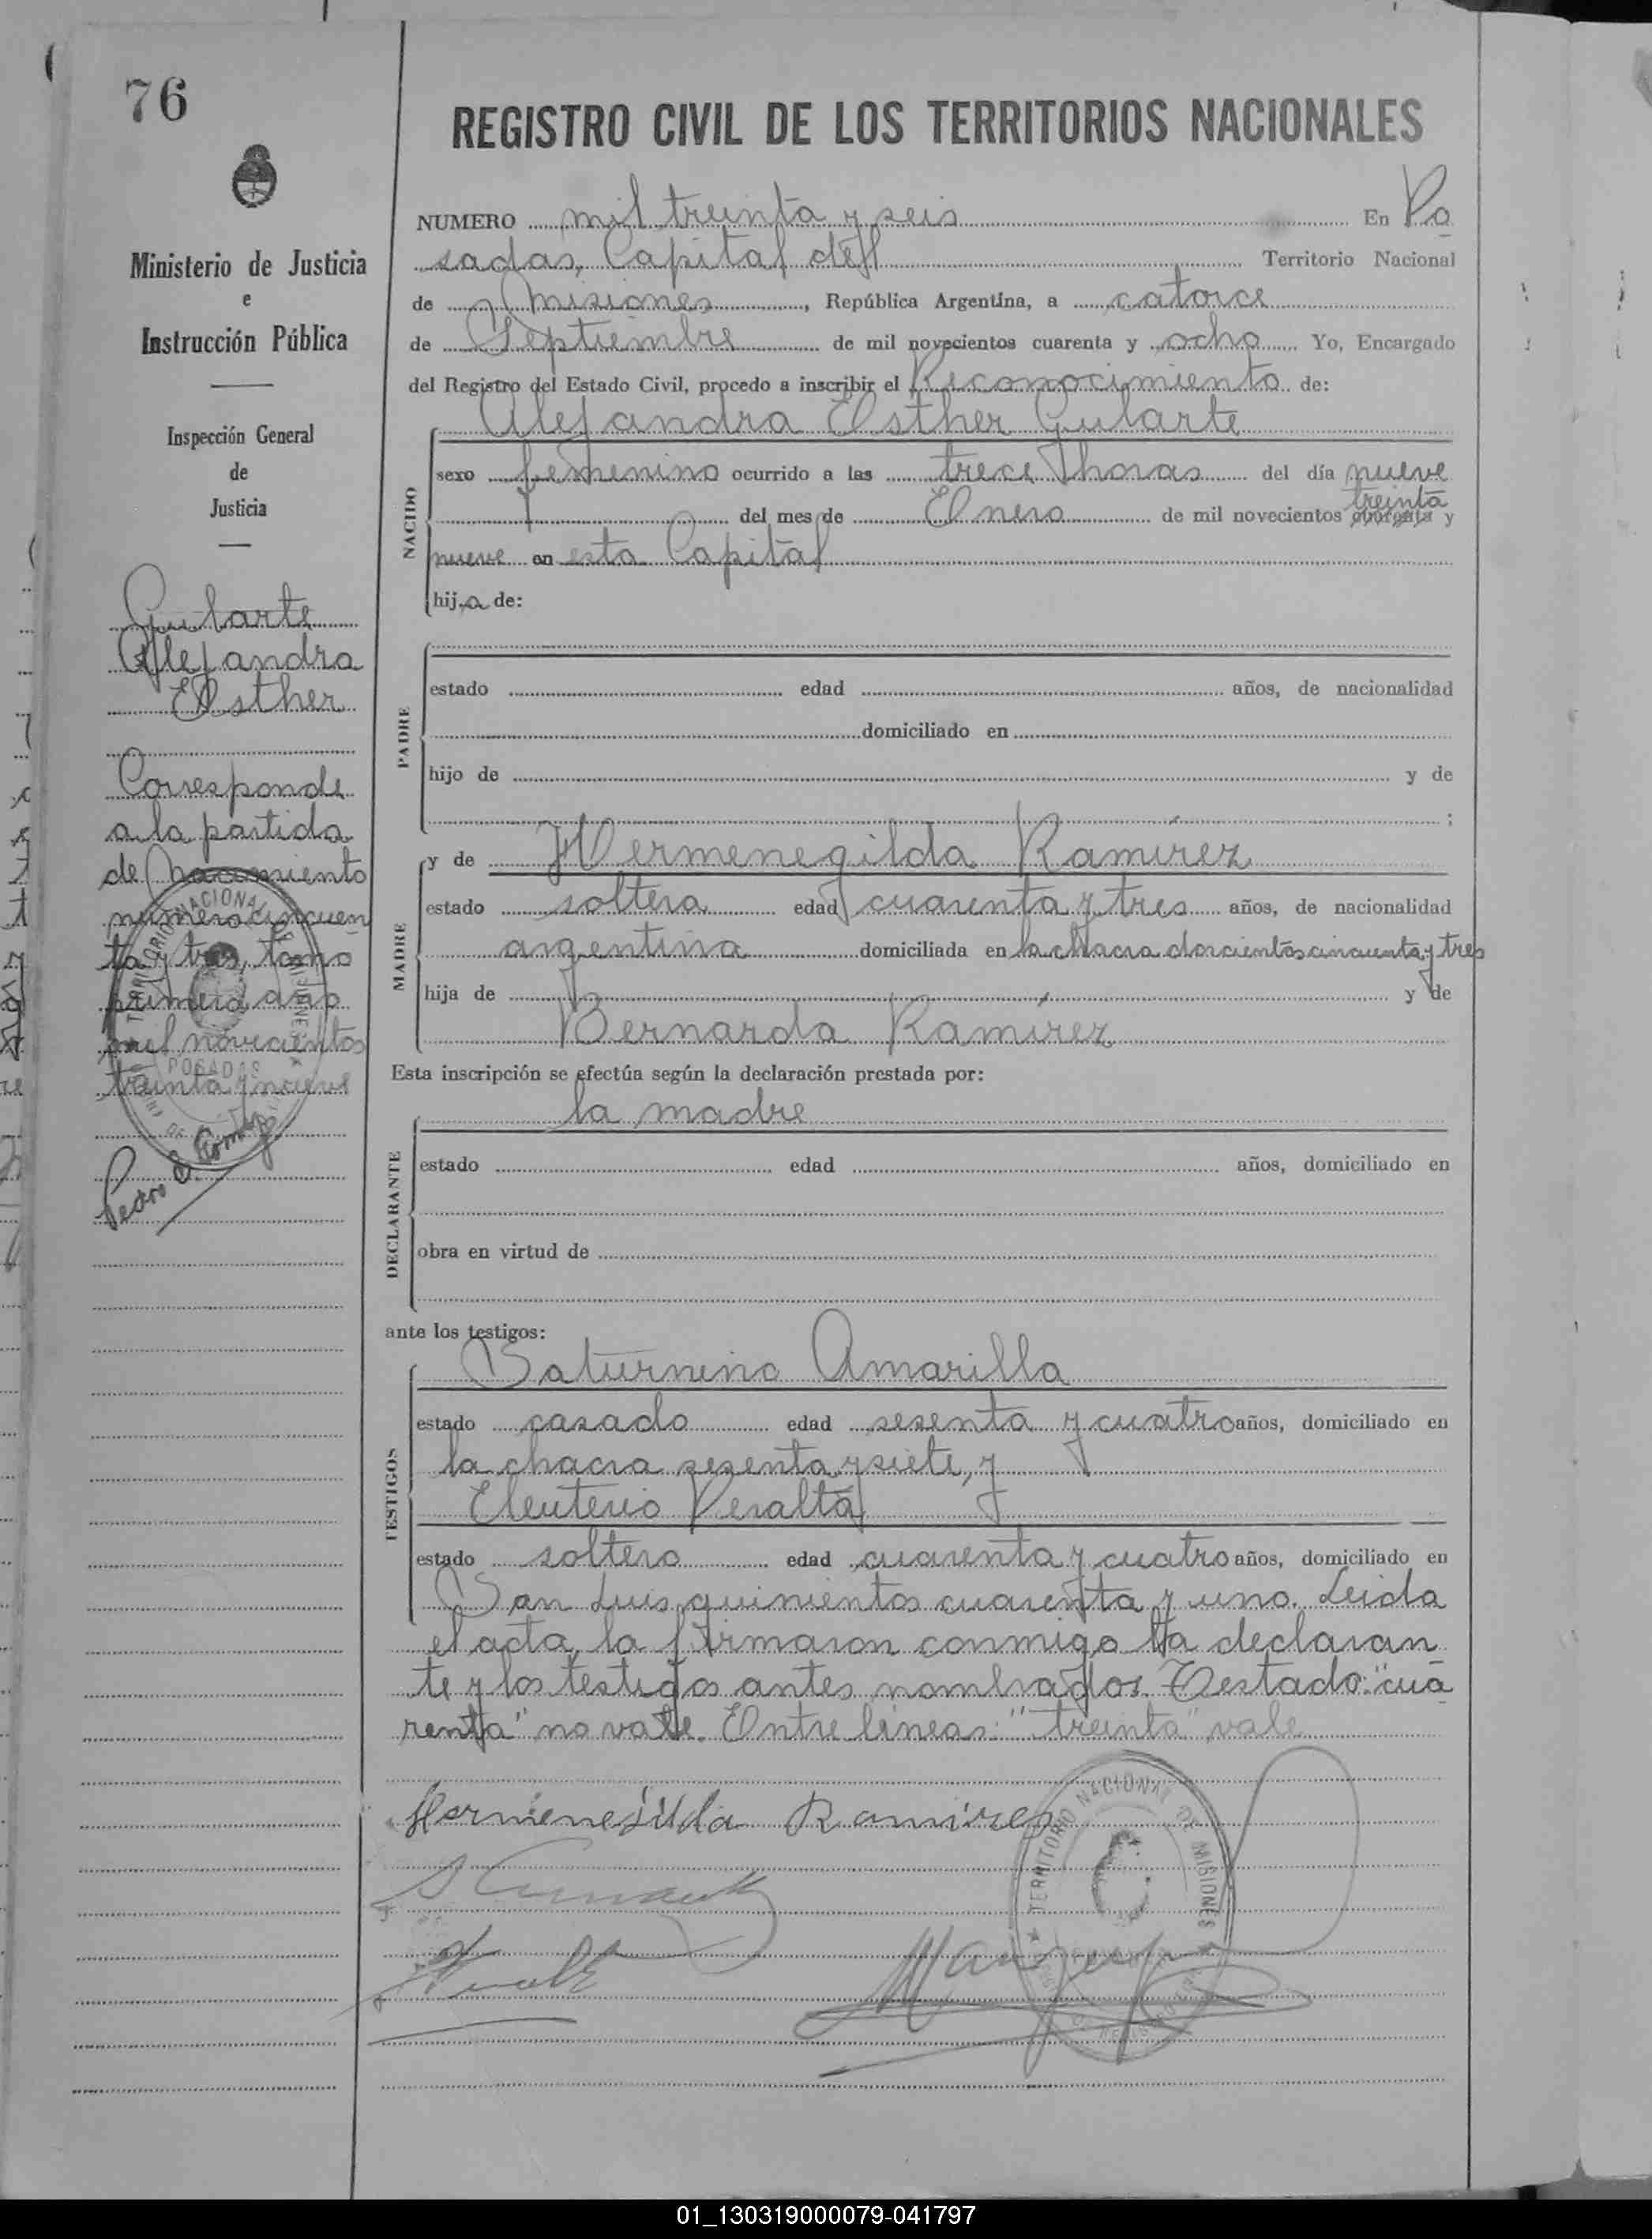 76
REGISTRO CIVIL DE LOS TERRITORIOS NACIONALES
Ministerio de Justicia
e
Instrucción Pública
Inspección General
de
Justicia
Gularte
Alejandra
Esther
Corresponde
a la partida
de nacimiento
número cincuen
ta y tres, tomo
primero año
mil novecientos
treinta y nueve
Pedro
NUMERO mil treinta y seis En Po
sadas, Capital del Territorio Nacional
de Misiones, República Argentina, a catorce
de Septiembre de mil novecientos cuarenta y ocho Yo, Encargado
del Registro del Estado Civil, procedo a inscribir el Reconocimiento de:
Alejandra Esther Gularte
NACIDO
sexo femenino ocurrido a las trece horas del día nueve
treinta
del mes de Enero de mil novecientos cuarenta y
nueve en esta Capital
hija de:
PADRE
estado edad años, de nacionalidad
domiciliado en
hijo de y de
;
MADRE
y de Hermenegilda Ramírez
estado soltera edad cuarenta y tres años, de nacionalidad
argentina domiciliada en la chacra doscientos cincuenta y tres
hija de y de
Bernarda Ramírez
Esta inscripción se efectúa según la declaración prestada por:
la madre
DECLARANTE
estado edad años, domiciliado en
obra en virtud de
ante los testigos:
TESTIGOS
Saturnino Amarilla
estado casado edad sesenta y cuatro años, domiciliado en
la chacra sesenta y siete, y
Eleuterio Peralta
estado soltero edad cuarenta y cuatro años, domiciliado en
San Luis quinientos cuarenta y uno. Leida
el acta, la firmaron conmigo la declaran
te y los testigos antes nombrados. Testado: "cua
renta" no vale. Entre líneas: "treinta" vale
Hermenegilda Ramires
TERRITORIO NACIONAL DE MISIONES
01_130319000079-041797